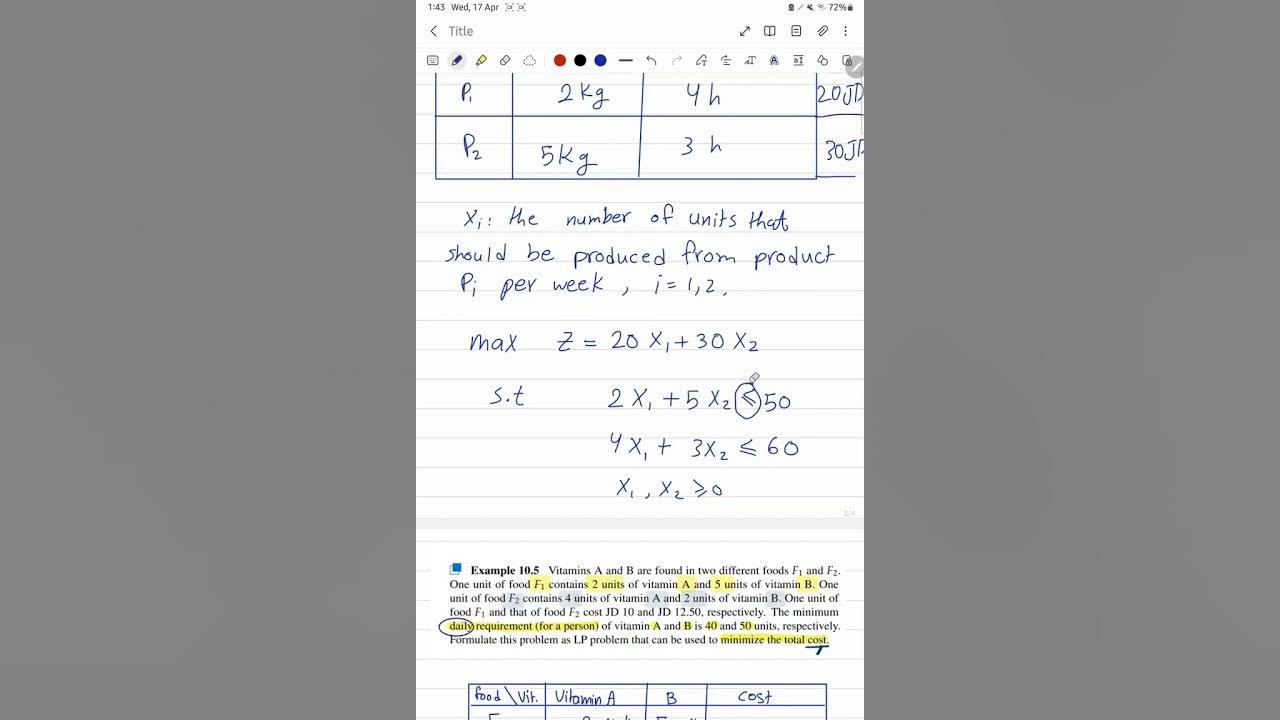 1:43 Wed, 17 Apr 72%
Title
P₁ 2 Kg 4 h 20 JD
P₂ 5 Kg 3 h 30 JD
Xᵢ: the number of units that
should be produced from product
Pᵢ per week, i = 1, 2.
max Z = 20 X₁ + 30 X₂
s.t 2 X₁ + 5 X₂ ≤ 50
4X₁ + 3X₂ ≤ 60
X₁, X₂ ≥ 0
2/4
Example 10.5 Vitamins A and B are found in two different foods F₁ and F₂.
One unit of food F₁ contains 2 units of vitamin A and 5 units of vitamin B. One
unit of food F₂ contains 4 units of vitamin A and 2 units of vitamin B. One unit of
food F₁ and that of food F₂ cost JD 10 and JD 12.50, respectively. The minimum
daily requirement (for a person) of vitamin A and B is 40 and 50 units, respectively.
Formulate this problem as LP problem that can be used to minimize the total cost.
food \ Vit. Vitamin A B Cost